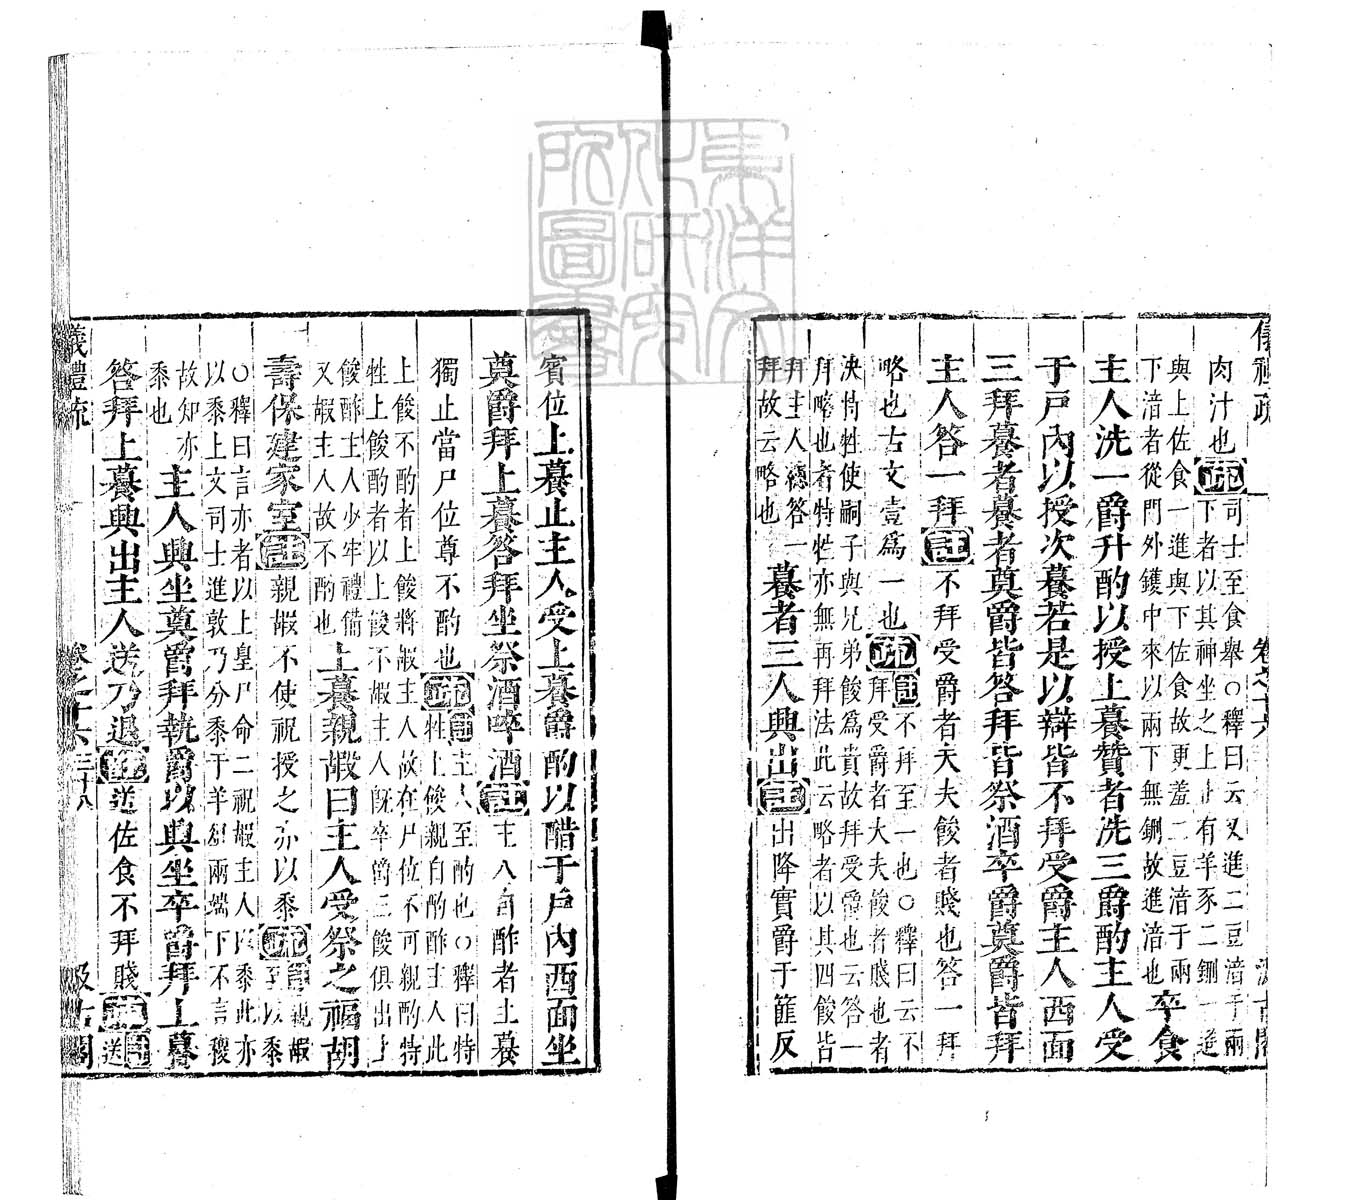 肉汁也疏司士至食舉○釋曰云又進二豆湆于兩
下者以其神坐之上止有羊豕二鉶一進
與上佐食一進與下佐食故更羞二豆湆于兩
下湆者從門外鑊中來以兩下無鉶故進湆也卒食
主人洗一爵升酌以授上䉵贊者洗三爵酌主人受
于戶內以授次䉵若是以辯皆不拜受爵主人西面
三拜䉵者䉵者奠爵皆答拜皆祭酒卒爵奠爵皆拜
主人答一拜註不拜受爵者大夫餕者賤也答一拜
略也古文壹為一也疏註不拜至一也○釋曰云不
拜受爵者大夫餕者賤也者
決特牲使嗣子與兄弟餕為貴故拜受爵也云答一
拜略也者特牲亦無再拜法此云略者以其四餕皆
拜主人總答一
拜故云略也䉵者三人興出註出降實爵于篚反
賓位上䉵止主人受上䉵爵酌以醋于戶內西面坐
奠爵拜上䉵答拜坐祭酒啐酒註主人自酢者上䉵
獨止當尸位尊不酌也疏註主人至酌也○釋曰特
牲上餕親自酌酢主人此
上餕不酌者上餕將嘏主人故在尸位不可親酌特
牲上餕酌者以上餕不嘏主人既卒爵二餕俱出上
餕酢主人少牢禮備
又嘏主人故不酌也上䉵親嘏曰主人受祭之福胡
壽保建家室註親嘏不使祝授之亦以黍疏註親嘏
至以黍
○釋曰言亦者以上皇尸命工祝嘏主人以黍此亦
以黍上文司士進敦乃分黍于羊俎兩端下不言稷
故知亦
黍也主人興坐奠爵拜執爵以興坐卒爵拜上䉵
答拜上䉵興出主人送乃退註送佐食不拜賤疏註送
儀禮疏 卷之十六 三十八 汲古閣